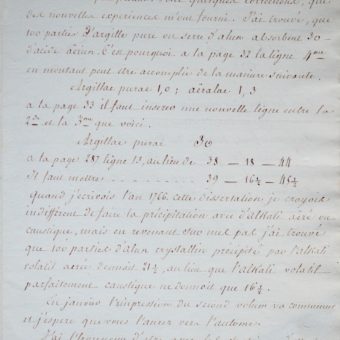 quelques corrections, que
des nouvelles experiences m'ont fourni. J'ai trouvé, que
100 parties d'argille pure en terre d'alun absorbent 30
d'acide aërien. C'est pourquoi a la page 32 la ligne 4me
en montant peut être accomplie de la maniere suivante.
Argillae purae 1,0; aëralae 1,3
a la page 33 il faut inserer une nouvelle ligne entre la
2de et la 3me que voici.
Argillae purae
a la page 287 ligne 13, au lieu de 38 — 18 — 44
il faut mettre 39 — 16½ — 45½
Quand j'ecrivois l'an 1766 cette dissertation je croyois
indifferent de faire la précipitation avec d'alkali aëré ou
caustique, mais en revenant sur mes pas j'ai trouvé
que 100 parties d'alun crystallin précipité par l'alkali
volatil aëré donnoit 21½, au lieu que l'alkali volatil
parfaitement caustique ne donnoit que 16½.
En janvier l'impression du second volum va commencer
et j'espere que vous l'aurez vers l'automne.
J'ai l'honneur d'etre avec